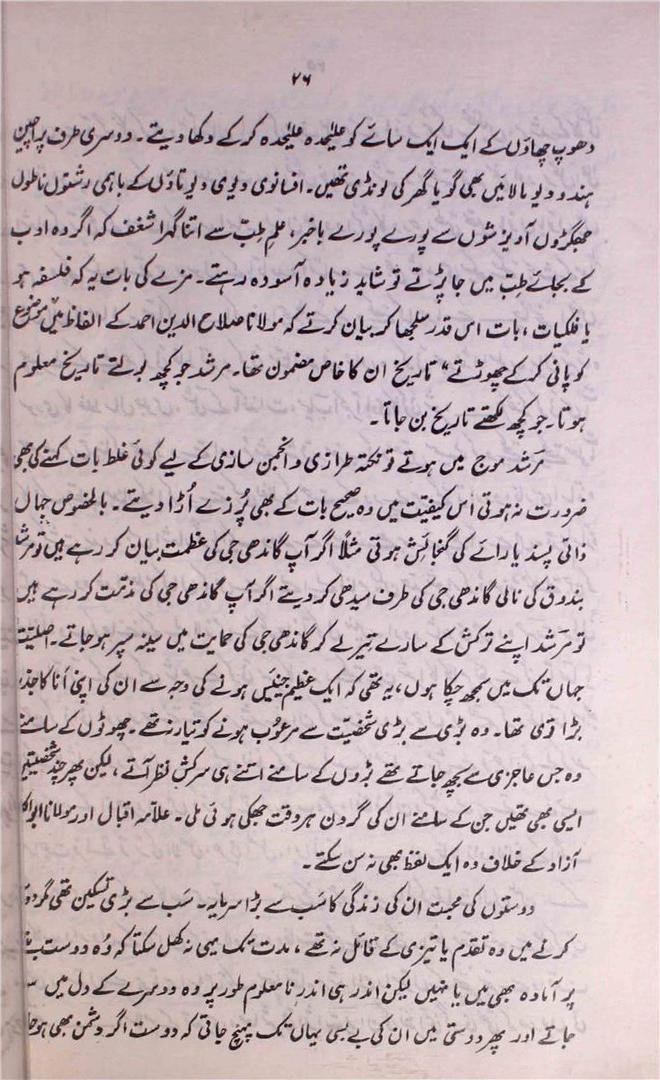 ۲۶
دھوپ چھاؤں کے ایک ایک سائے کو علیٰحدہ علیٰحدہ کر کے دکھا دیتے۔ دوسری طرف پراچین
ہندو دیو مالائیں بھی گویا گھر کی لونڈی تھیں۔ افسانوی دیوی دیوتاؤں کے باہمی رشتوں ناطوں
جھگڑوں آویزشوں سے پورے پورے باخبر، علمِ طِبّ سے اتنا گہرا شغف کہ اگر وہ ادب
کے بجائے طِبّ میں جا پڑتے تو شاید زیادہ آسودہ رہتے۔ مزے کی بات یہ کہ فلسفہ ہو
یا فلکیات، بات اس قدر سلجھا کر بیان کرتے کہ مولانا صلاح الدین احمد کے الفاظ میں "موضوع
کو پانی کر کے چھوڑتے" تاریخ ان کا خاص مضمون تھا۔ مرشد جو کچھ بولتے تاریخ معلوم
ہوتا۔ جو کچھ لکھتے تاریخ بن جاتا۔
مرشد موج میں ہوتے تو نکتہ طرازی و انجمن سازی کے لیے کوئی غلط بات کہنے کی بھی
ضرورت نہ ہوتی اس کیفیت میں وہ صحیح بات کے بھی پُرزے اُڑا دیتے۔ بالخصوص جہاں
ذاتی پسند یا رائے کی گنجائش ہوتی مثلًا اگر آپ گاندھی جی کی عظمت بیان کر رہے ہیں تو مرشد
بندوق کی نالی گاندھی جی کی طرف سیدھی کر دیتے اگر آپ گاندھی جی کی مذمّت کر رہے ہیں
تو مرشد اپنے ترکش کے سارے تیر لے کر گاندھی جی کی حمایت میں سینہ سپر ہو جاتے۔ اصلیّت
جہاں تک میں سمجھ چکا ہوں، یہ تھی کہ ایک عظیم جینئیس ہونے کی وجہ سے ان کی اپنی اَنا کا جذبہ
بڑا قوی تھا۔ وہ بڑی سے بڑی شخصیّت سے مرعُوب ہونے کو تیار نہ تھے۔ چھوٹوں کے سامنے
وہ جس عاجزی سے بچھ جاتے تھے بڑوں کے سامنے اتنے ہی سرکش نظر آتے، لیکن پھر چند شخصیتیں
ایسی بھی تھیں جن کے سامنے ان کی گردن ہر وقت جھکی ہوئی ملی۔ علامہ اقبال اور مولانا ابوالکلام
آزاد کے خلاف وہ ایک لفظ بھی نہ سن سکتے۔
دوستوں کی محبت ان کی زندگی کا سَب سے بڑا سرمایہ۔ سَب سے بڑی تسکین تھی گو
کرنے میں وہ تقدم یا تیزی کے قائل نہ تھے، مدت تک یہی نہ کھل سکتا کہ وُہ دوست
پر آمادہ بھی ہیں یا نہیں لیکن اندر ہی اندر نا معلوم طور پر وہ دوسرے کے دل میں
جاتے اور پھر دوستی میں ان کی بے بسی یہاں تک پہنچ جاتی کہ دوست اگر دشمن بھی ہو جا